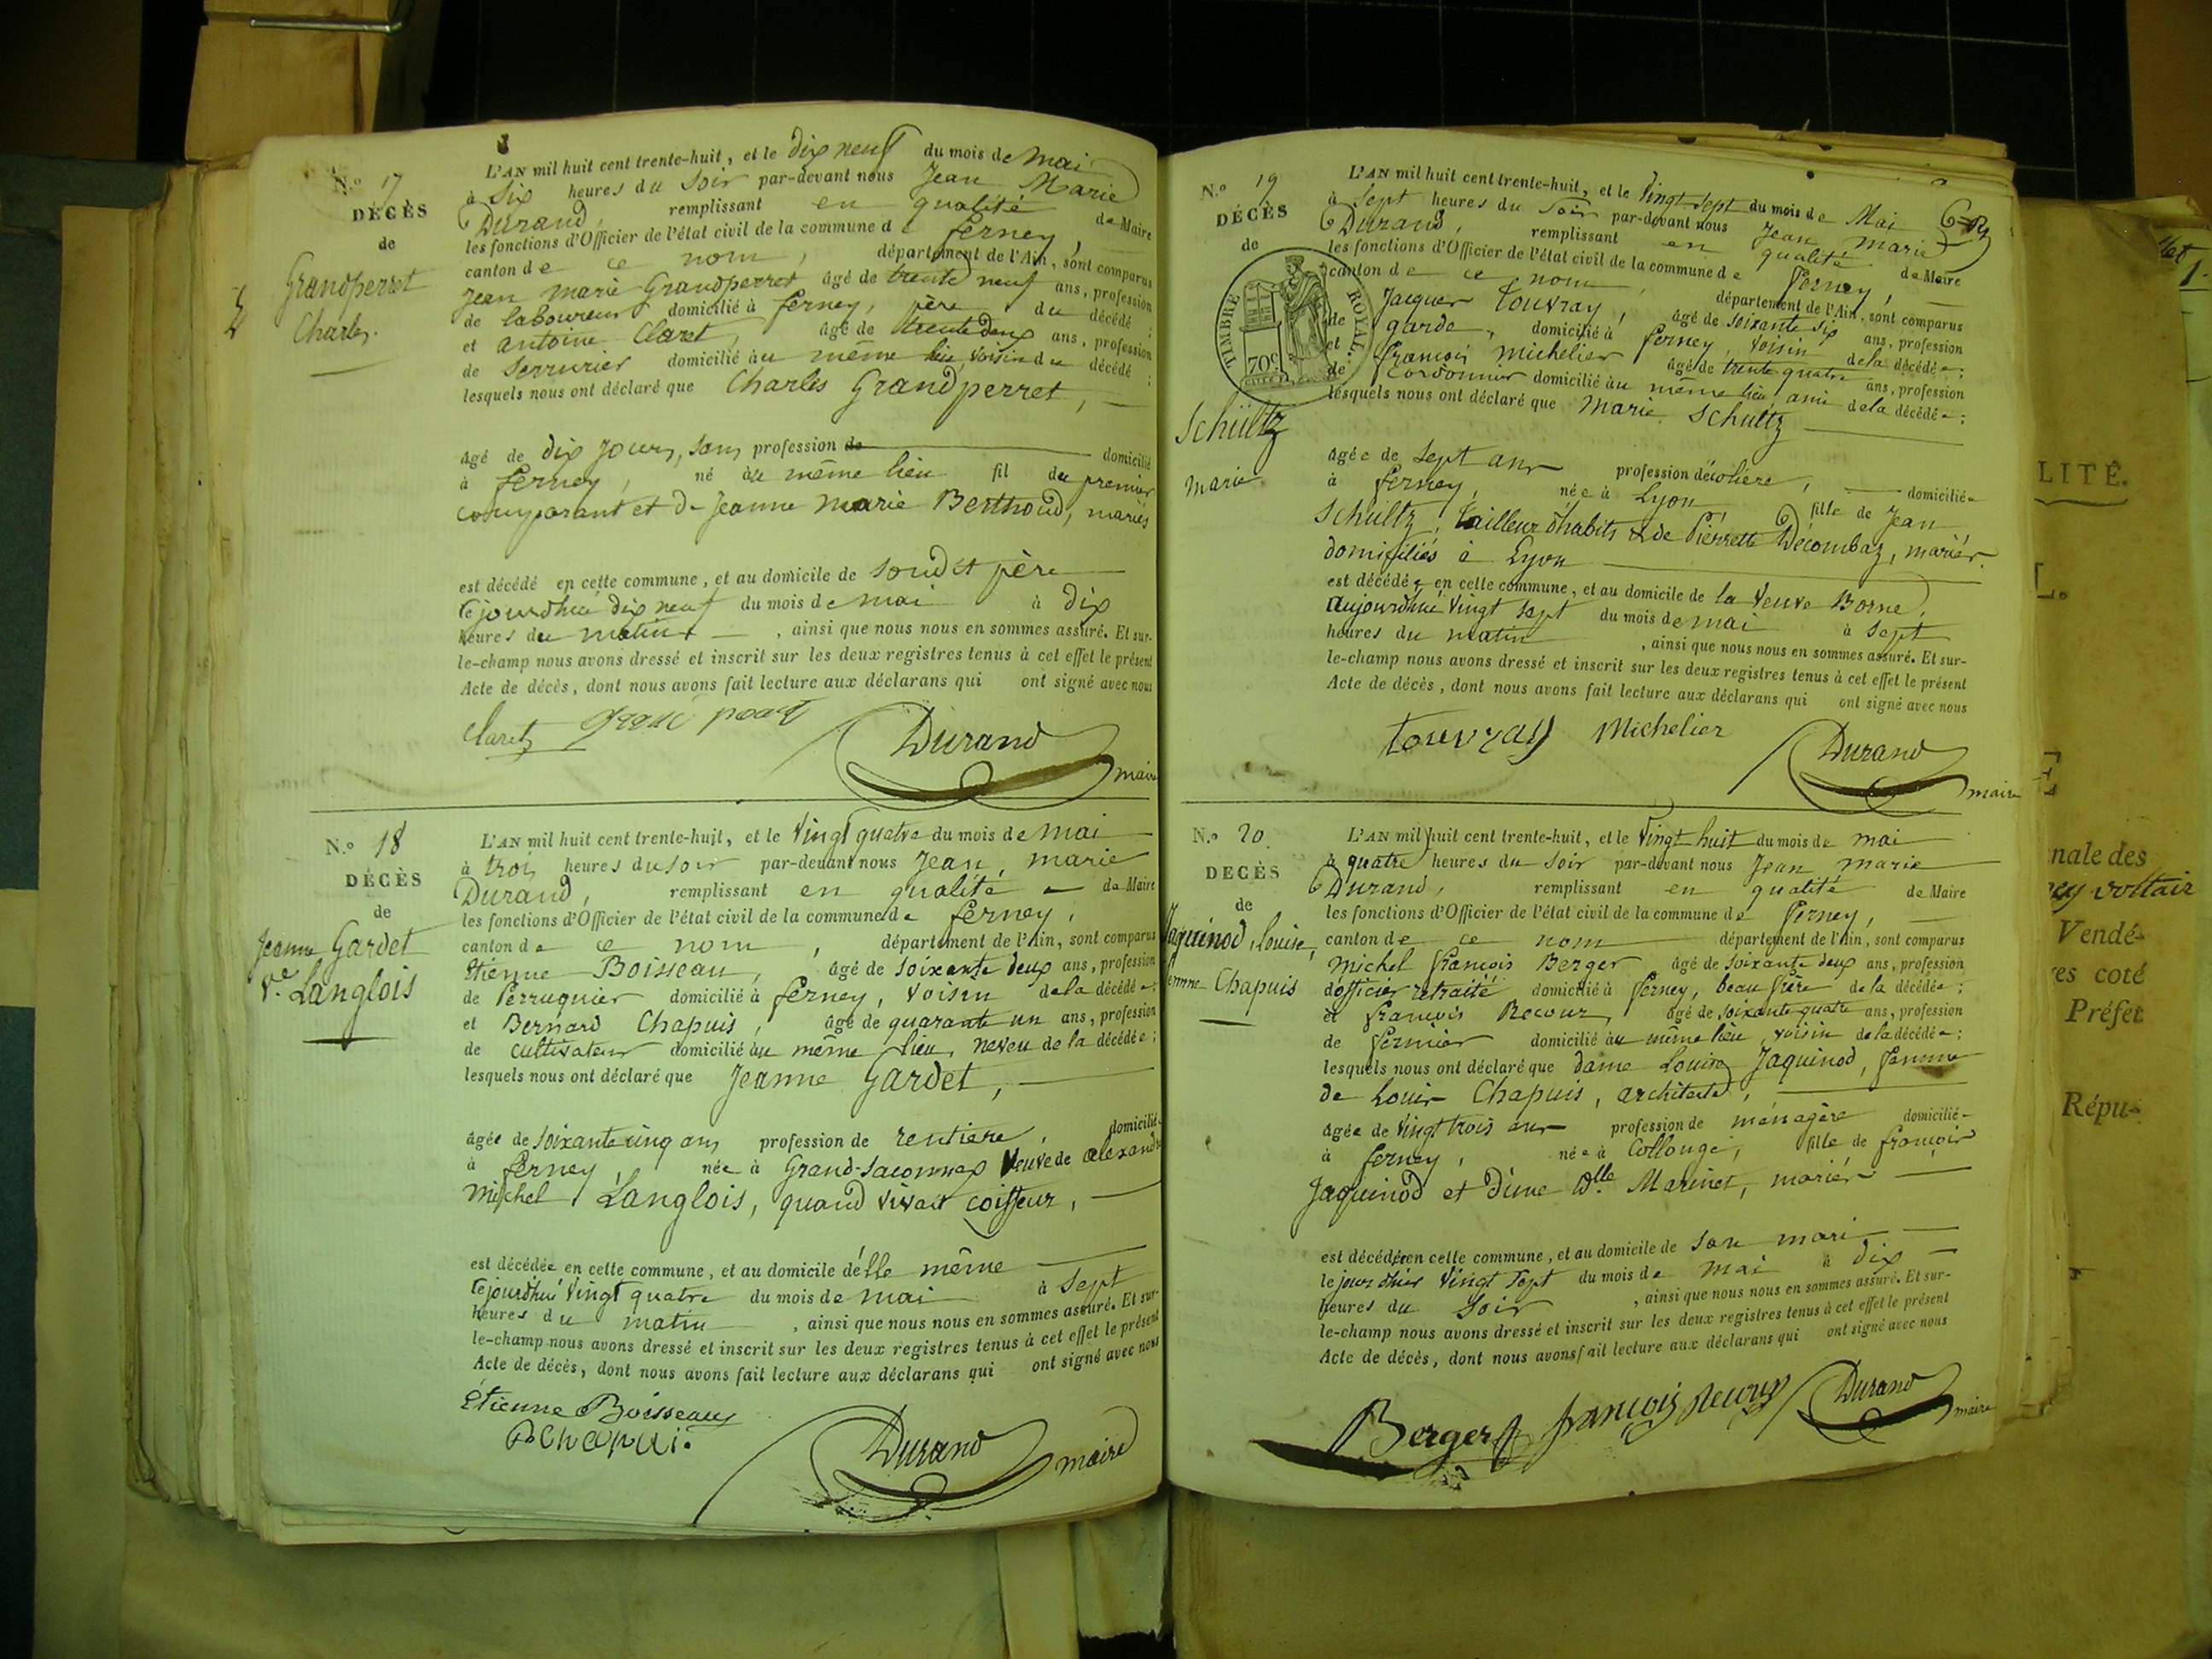 N.o 17
DÉCÈS
de
Grandperret
Charles.
L'AN mil huit cent trente-huit, et le dix neuf du mois de Mai
à Six heures du Soir par-devant nous Jean Marie
Durand, remplissant en qualité de Maire
les fonctions d'Officier de l'état civil de la commune d ferney,
canton de ce nom, département de l'Ain, sont comparus
Jean marie Grandperret âgé de trente neuf ans, profession
de laboureur domicilié à ferney, père du décédé ;
et antoine Claret, âgé de trente deux ans, profession
de Serrurier domicilié au même lieu, voisin du décédé ;
lesquels nous ont déclaré que Charles Grandperret,
âgé de dix jours, sans profession de domicilié
à ferney, né au même lieu fil du premier
comparant et de Jeanne Marie Berthoud, mariés
est décédé en cette commune, et au domicile de Sondit père
le jourdhui dix neuf du mois de mai à dix
heures du matin, ainsi que nous nous en sommes assuré. Et sur-
le-champ nous avons dressé et inscrit sur les deux registres tenus à cet effet le présent
Acte de décès, dont nous avons fait lecture aux déclarans qui ont signé avec nous
Claret
Durand
maire
N.o 18
DÉCÈS
de
Jeanne Gardet
Ve. Langlois
L'AN mil huit cent trente-huit, et le Vingt quatre du mois de mai
à trois heures du soir par-devant nous Jean marie
Durand, remplissant en qualité de Maire
les fonctions d'Officier de l'état civil de la commune de ferney,
canton de ce nom, département de l'Ain, sont comparus
Etienne Boisseau, âgé de soixante deux ans, profession
de Perruquier domicilié à ferney, voisin de la décédée ;
et Bernard Chapuis, âgé de quarante un ans, profession
de cultivateur domicilié au même lieu, neveu de la décédée ;
lesquels nous ont déclaré que Jeanne Gardet,
âgée de soixante cinq ans profession de rentiere, domiciliée
à ferney, née à Grand-Saconnex Veuve de alexandre
Michel Langlois, quand vivait coiffeur,
est décédée en cette commune, et au domicile d'elle même
le jourdhui Vingt quatre du mois de mai à sept
heures du matin, ainsi que nous nous en sommes assuré. Et sur-
le-champ nous avons dressé et inscrit sur les deux registres tenus à cet effet le présent
Acte de décès, dont nous avons fait lecture aux déclarans qui ont signé avec nous
Etienne Boisseau
B Chapui.
Durand maire
N.o 19
DÉCÈS
de
TIMBRE ROYAL.
70c
Schültz
Marie
L'AN mil huit cent trente-huit, et le Vingt Sept du mois de Mai
à Sept heures du Soir par-devant nous Jean Marie
Durand, remplissant en qualité de Maire
les fonctions d'Officier de l'état civil de la commune de ferney,
canton de ce nom, département de l'Ain, sont comparus
Jacques Touvray, âgé de soixante six ans, profession
de garde, domicilié à ferney, voisin de la décédée ;
et françois Michelier âgé de trente quatre ans, profession
de Cordonnier domicilié au même lieu, ami de la décédée ;
lesquels nous ont déclaré que Marie Schultz
âgée de Sept ans profession d'écolière, domiciliée
à ferney, née à Lyon, fille de Jean
Schultz, tailleur d'habits & de Pierrette Décombaz, mariés
domiciliés à Lyon
est décédée en cette commune, et au domicile de la Veuve Borne,
aujourdhui Vingt Sept du mois de mai à Sept
heures du matin, ainsi que nous nous en sommes assuré. Et sur-
le-champ nous avons dressé et inscrit sur les deux registres tenus à cet effet le présent
Acte de décès, dont nous avons fait lecture aux déclarans qui ont signé avec nous
touvray Michelier
Durand
maire
N.o 20.
DÉCÈS
de
Jaquinod, Louise,
femme Chapuis
L'AN mil huit cent trente-huit, et le Vingt huit du mois de mai
à quatre heures du Soir par-devant nous Jean marie
Durand, remplissant en qualité de Maire
les fonctions d'Officier de l'état civil de la commune de ferney,
canton de ce nom département de l'Ain, sont comparus
Michel françois Berger âgé de soixante deux ans, profession
d'officier retraité domicilié à ferney, beau frère de la décédée ;
et françois Recour, âgé de soixante quatre ans, profession
de fermier domicilié au même lieu, voisin de la décédée ;
lesquels nous ont déclaré que dame Louise Jaquinod, femme
de Louis Chapuis, architecte,
âgée de Vingt trois ans profession de ménagère domiciliée
à ferney, née à Collonge, fille de françois
Jaquinod et d'une Dlle Marinet, mariés
est décédée en cette commune, et au domicile de son mari
le jour d'hier Vingt Sept du mois de mai à dix
heures du Soir, ainsi que nous nous en sommes assuré. Et sur-
le-champ nous avons dressé et inscrit sur les deux registres tenus à cet effet le présent
Acte de décès, dont nous avons fait lecture aux déclarans qui ont signé avec nous
Berger
Durand
maire
LITÉ.
nale des
ey voltair
Vendé-
res coté
Préfet
Répu-